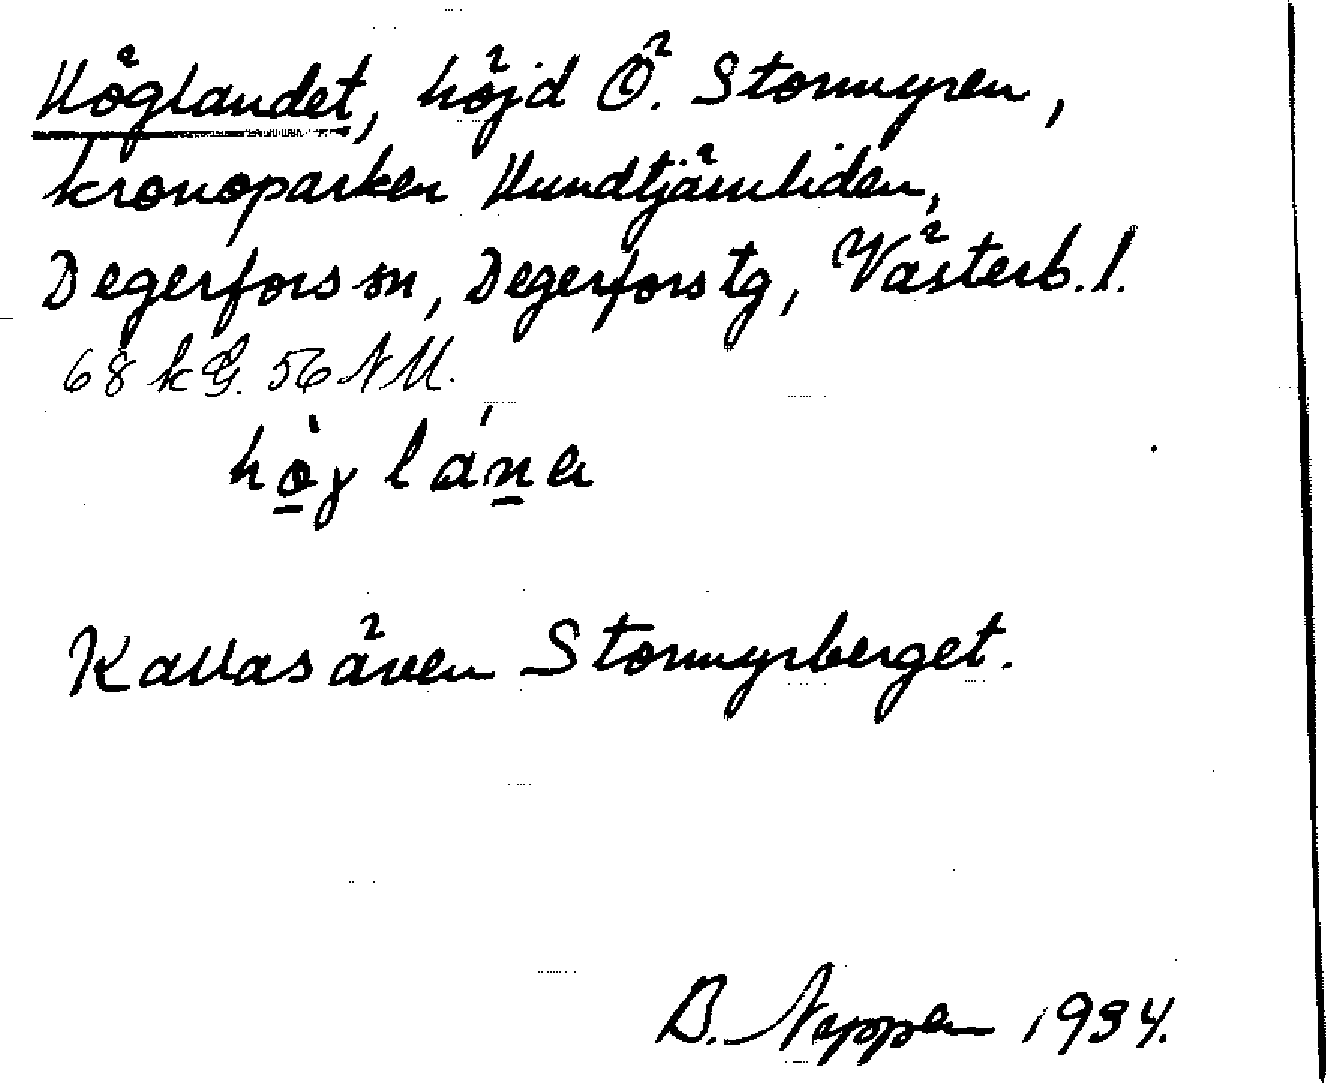 Höglandet, höjd Ö. Stormyren,
kronoparken Hundtjärnliden,
Degerfors sn, Degerfors tg, Västerb. l.
68 kG. 56 NM.
hö̀gláṉa
Kallas även Stormyrberget.
B. 1934.